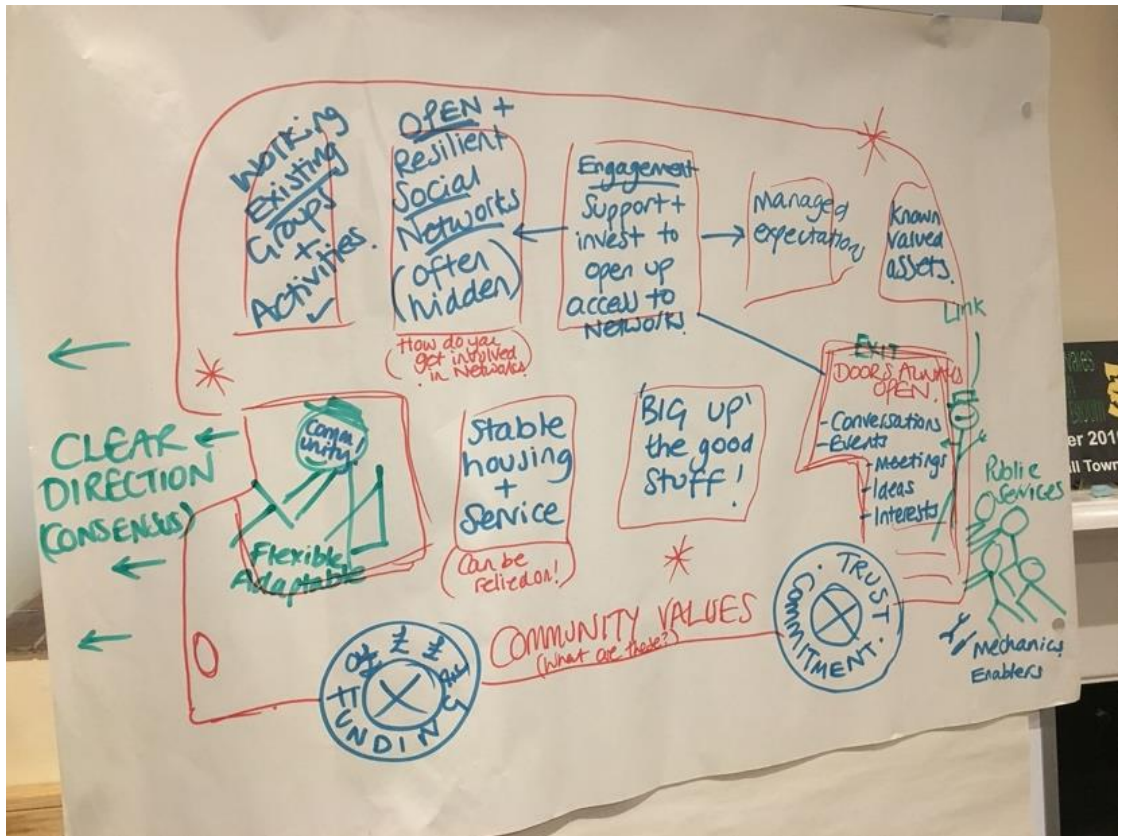 Working
Existing
Groups
+
Activities.
OPEN +
Resilient
Social
Networks
(often
hidden)
(How do you
get involved
in Networks)
Engagement
Support +
invest to
open up
access to
Network.
Managed
expectations
Known
valued
assets.
Link
EXIT
DOORS ALWAYS
OPEN.
-Conversations
-Events
-Meetings
-Ideas
-Interests
CLEAR
DIRECTION
(CONSENSUS)
Comm
unity!
Flexible
Adaptable
Stable
housing
+
Service
(Can be
relied on!)
'BIG UP'
the good
Stuff!
Public
Services
Mechanics
Enablers
COMMUNITY VALUES
(What are these?)
£ £
FUNDING
TRUST.
COMMITMENT.
er 201
ll Town